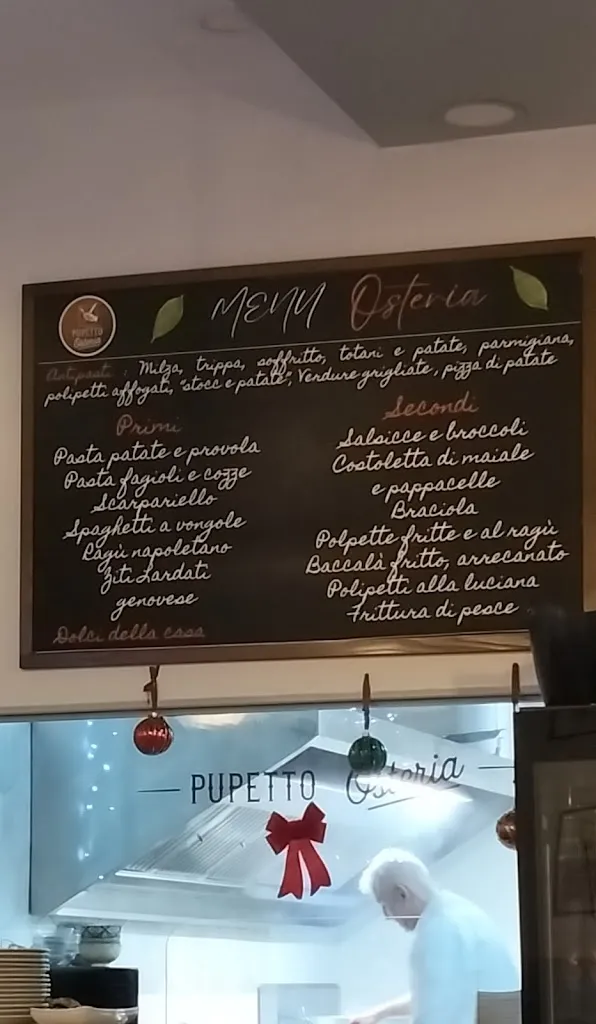 MENU Osteria
PUPETTO
Osteria
Antipasti : Milza, trippa, soffritto, totani e patate, parmigiana,
polipetti affogati, "stocc e patate", Verdure grigliate, pizza di patate
Primi
Pasta patate e provola
Pasta fagioli e cozze
Scarpariello
Spaghetti a vongole
Ragù napoletano
Ziti Lardati
genovese
Dolci della casa
Secondi
Salsicce e broccoli
Costoletta di maiale
e pappacelle
Braciola
Polpette fritte e al ragù
Baccalà fritto, arrecanato
Polipetti alla luciana
Frittura di pesce
PUPETTO Osteria